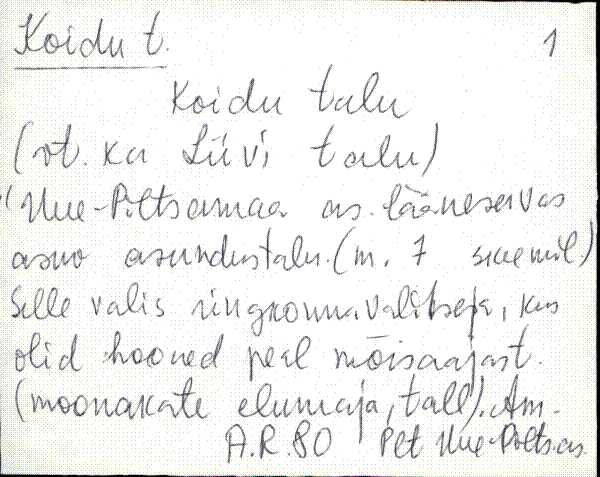 Koidu t. 1
Koidu talu
(vt. ka Liivi talu)
"Uue-Põltsamaa as. lääneservas
asuv asundustalu. (m. 7
Selle valis ringkonnavalitseja, kus
olid hooned peal mõisaajast.
(moonakate elumaja, tall). Am.
A.R. 80 Pet Uue-Põltsas.